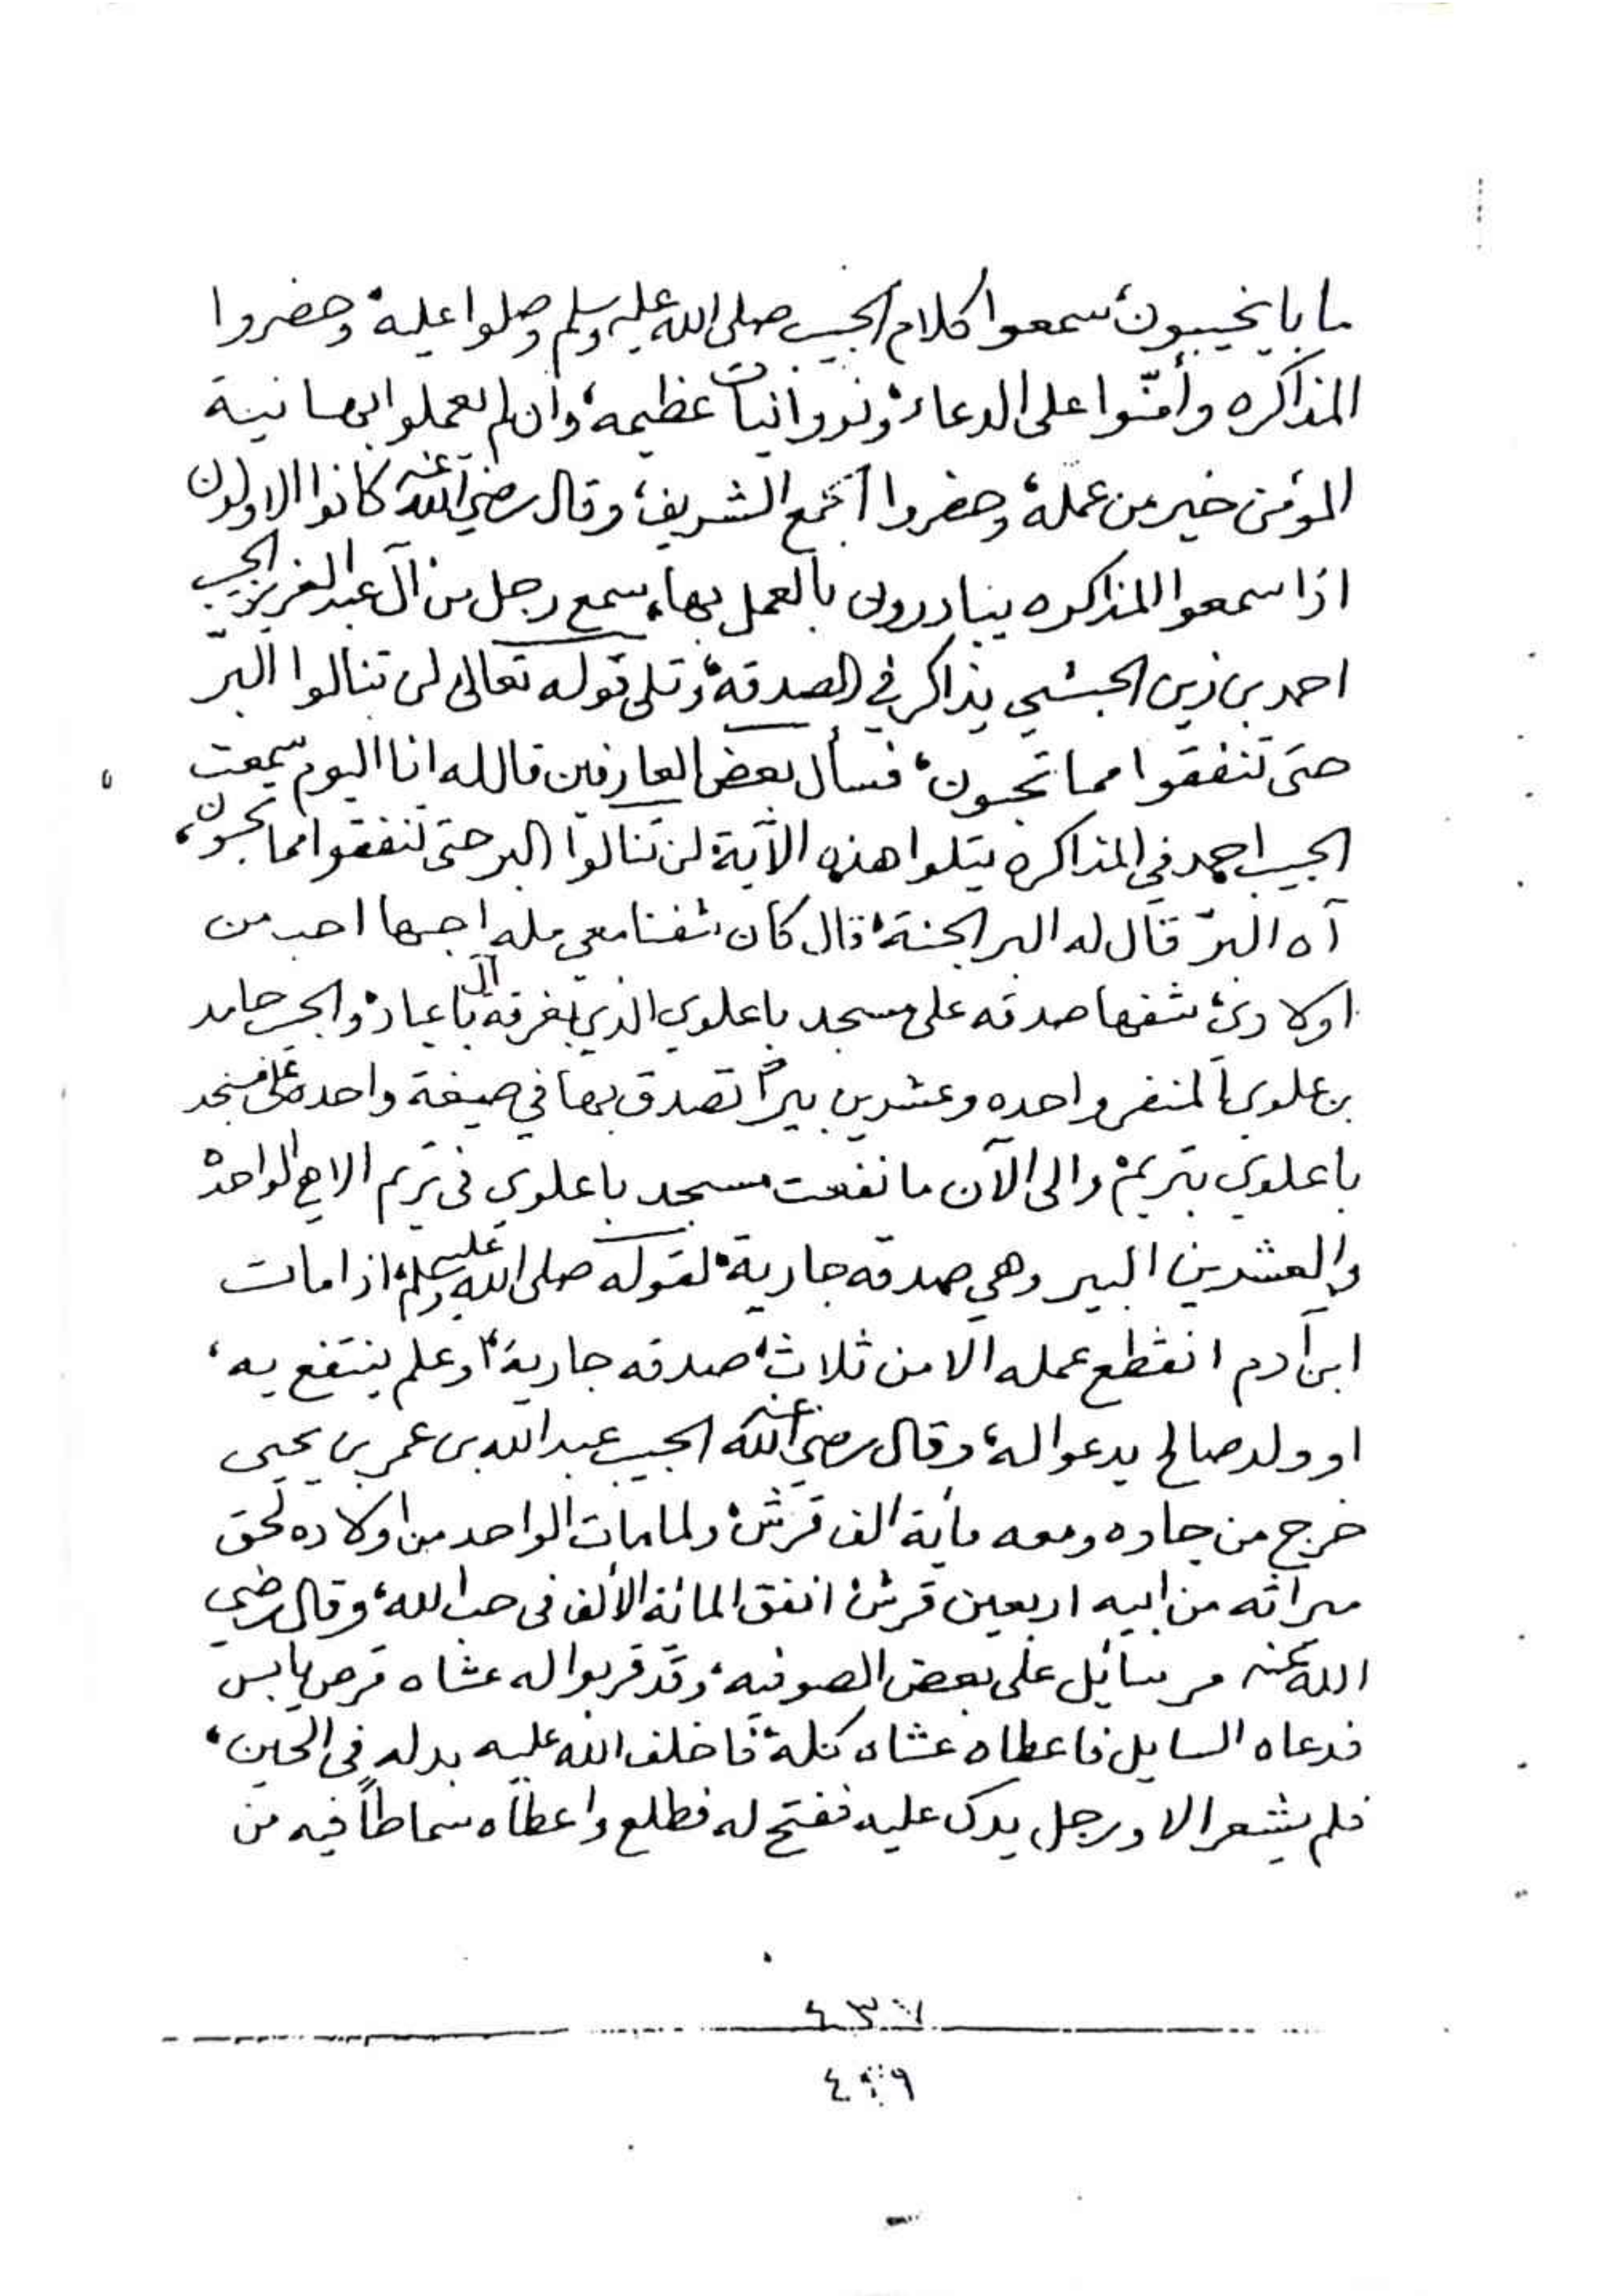 ما بايخيبون، سمعوا كلام الحبيب صلى الله عليه وسلم وصلوا عليه، وحضروا
المذاكره وأمّنوا على الدعاء، ونووا نيات عظيمه، وان لم يعملوا بها نية
المؤمن خير من عمله، وحضروا المجمع الشريف، وقال رضي الله عنه كانوا الاولون
اذا سمعوا المذاكره يبادرون بالعمل بها، سمع رجل من آل عبدالعزيز الحبيب
احمد بن زين الحبشي يذاكر في الصدقة، وتلى قوله تعالى لن تنالوا البرّ
حتى تنفقوا مما تحبون، فسأل بعض العارفين قال له انا اليوم سمعت
الحبيب احمد في المذاكره يتلوا هذه الآية، لن تنالوا البر حتى تنفقوا مما تحبون،
آه البرّ قال له البر الجنة، قال كان شفنا معي احبها احب من
اولادي، شفها صدقه على مسجد باعلوي الذي بغرفة آل باعباد، والحبيب حامد
بن علوي المنفر واحده وعشرين بيراً تصدق بها في صيغة واحده على مسجد
باعلوي بتريم، والى الآن ما نفعت مسجد باعلوي فى تريم الا الواحده
والعشرين البير وهي صدقه جارية، لقوله صلى الله عليه وسلم، اذا مات
ابن آدم انقطع عمله الا من ثلاث، صدقه جارية، او علم ينتفع به،
او ولد صالح يدعوا له، وقال رضي الله عنه الحبيب عبدالله بن عمر بن يحيى
خرج من جاوه ومعه مأية الف قرش، ولما مات الواحد من اولاده لحق
ميراثه من ابيه اربعين قرش، انفق المائة الألف فى حب الله، وقال رضي
الله عنه مر سائل على بعض الصوفيه، وقد قربوا له عشاه قرص يابس
فدعاه السايل فاعطاه عشاه كله، فاخلف الله عليه بدله فى الحين،
فلم يشعر الا ورجل يدك عليه ففتح له فطلع واعطاه سماطاً فيه من
٤٣٧